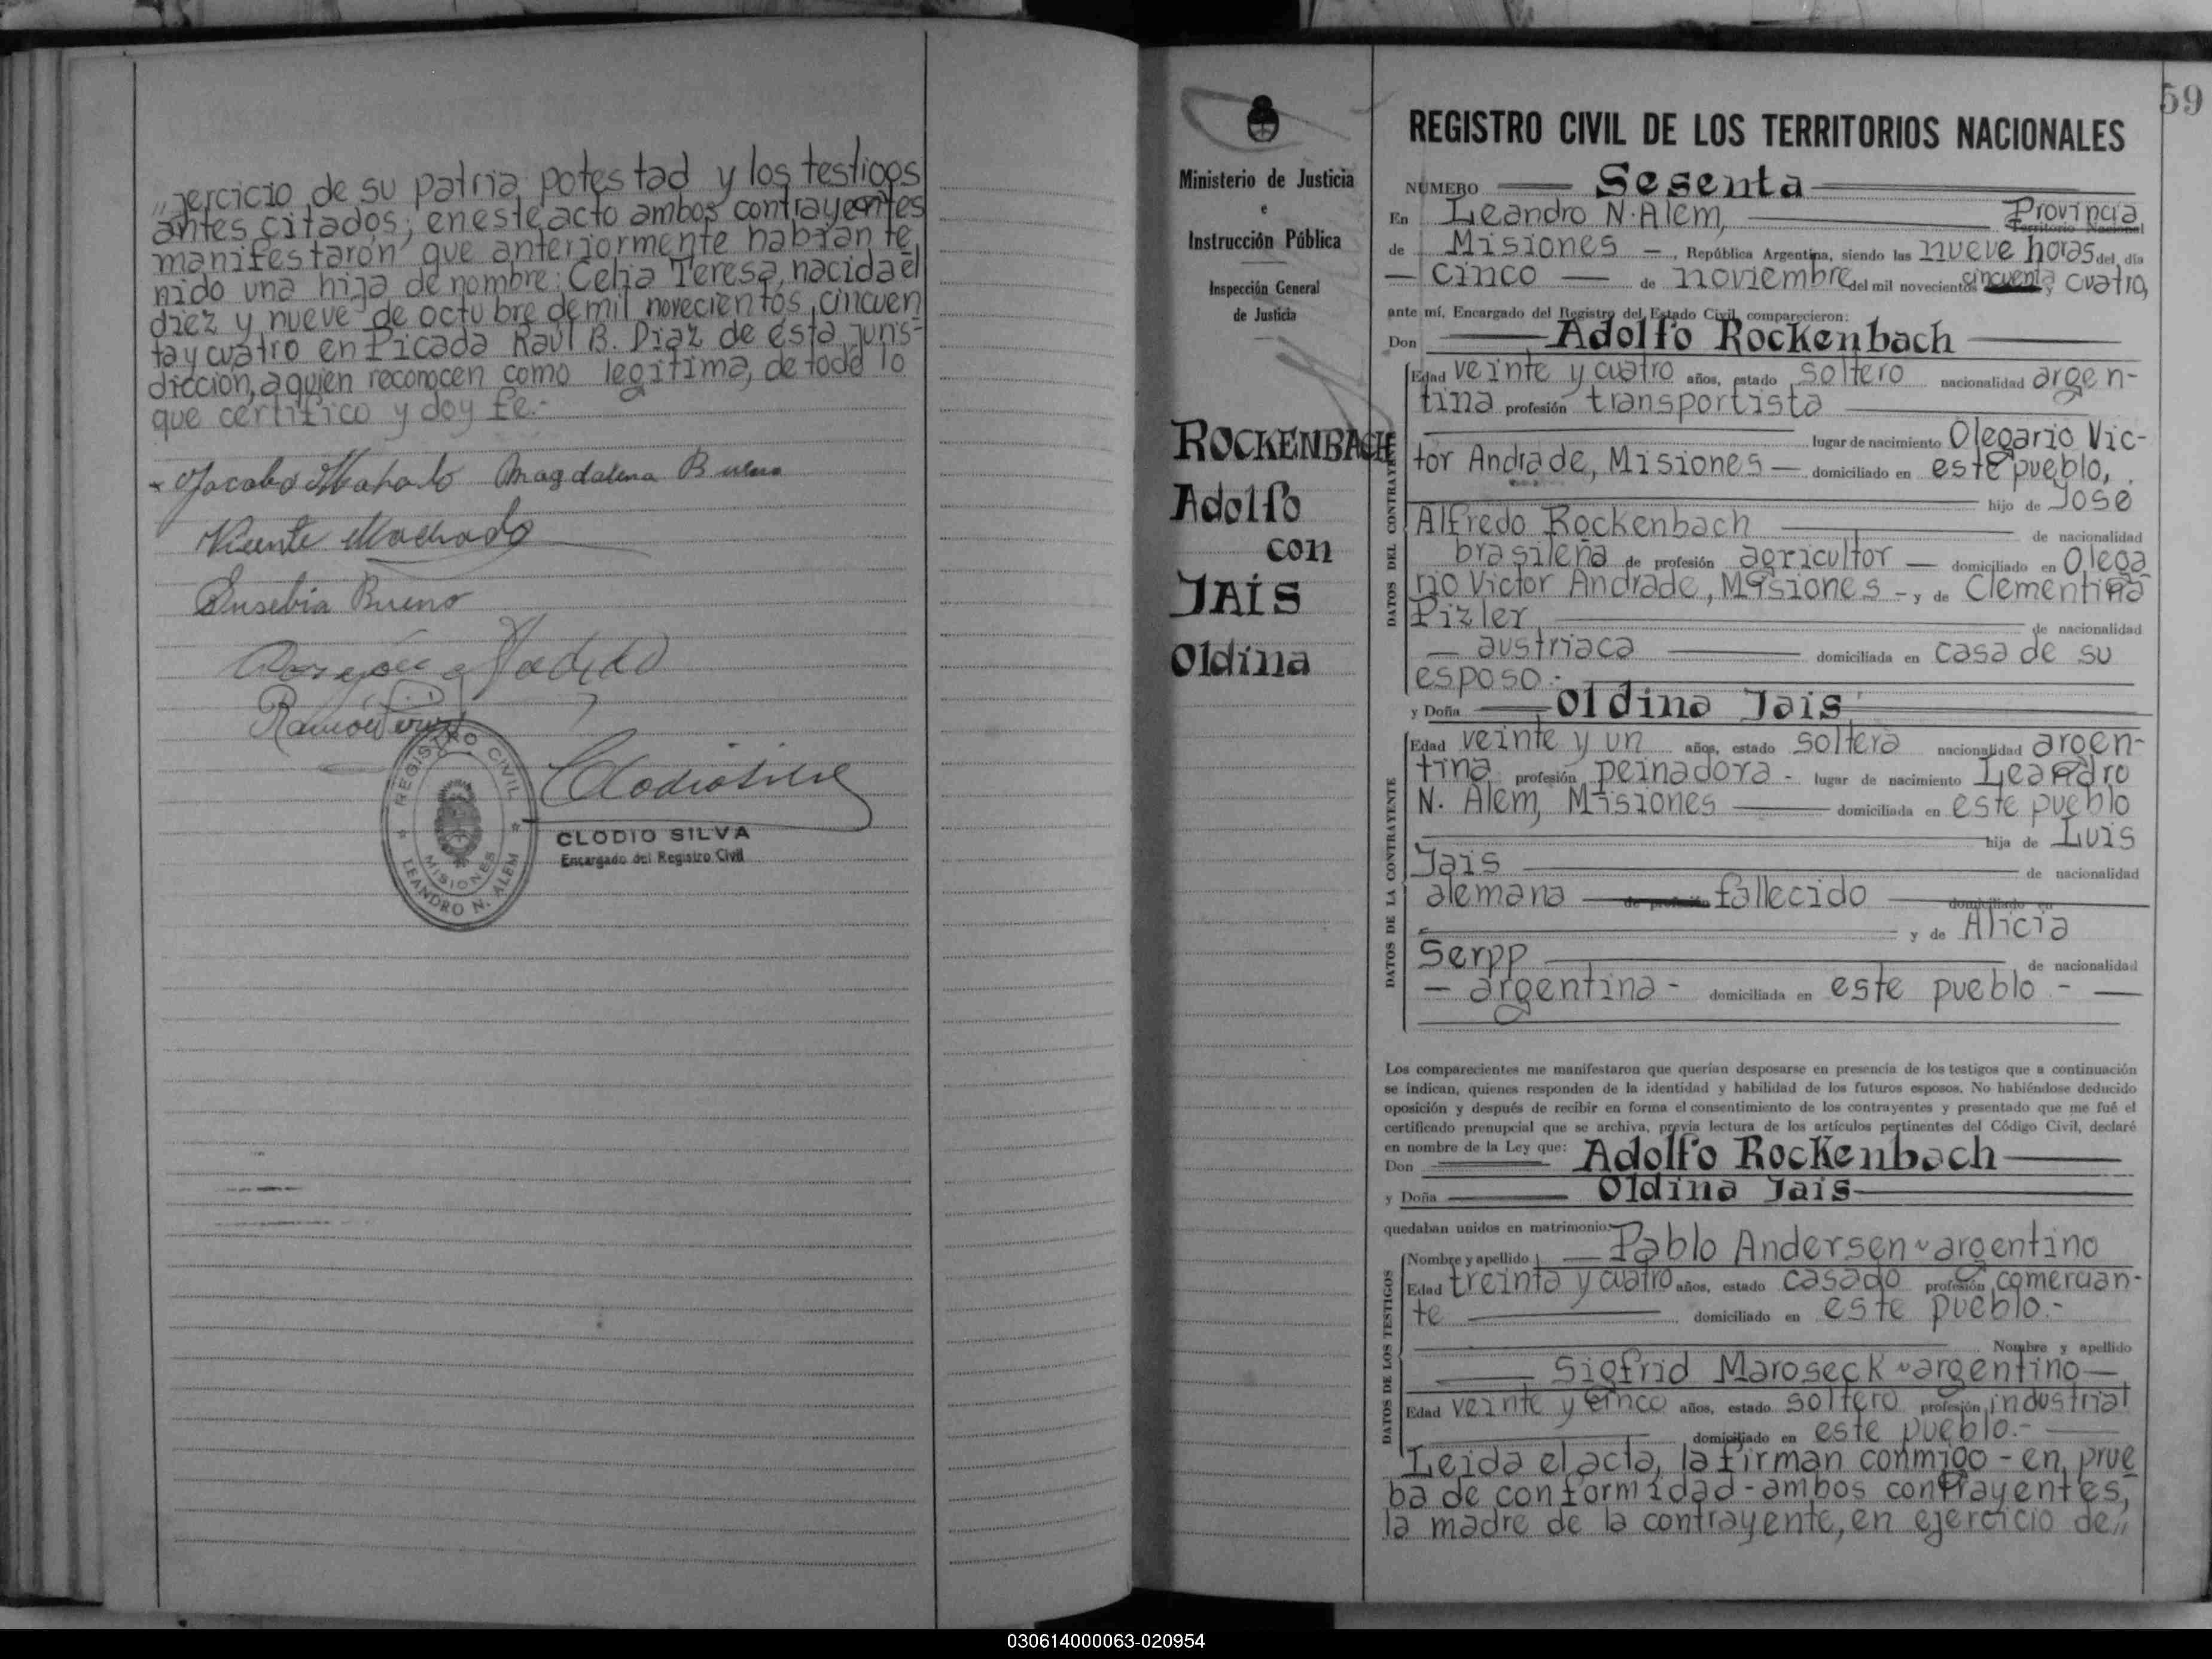 „jercicio de su patria potestad y los testigos
antes citados; en este acto ambos contrayentes
manifestaron que anteriormente habían te
nido una hija de nombre: Celia Teresa, nacida el
diez y nueve de octubre de mil novecientos cincuen
ta y cuatro en Picada Raúl B. Diaz de esta juris-
dicción, a quien reconocen como legítima, de todo lo
que certifico y doy fe.-
Magdalena Bueno
Vicente Machado
Eusebia Bueno
Ramón
REGISTRO CIVIL
MISIONES
LEANDRO N. ALEM
Clodio Silva
CLODIO SILVA
Encargado del Registro Civil
Ministerio de Justicia
e
Instrucción Pública
Inspección General
de Justicia
ROCKENBACH
Adolfo
con
JAIS
Oldina
59
REGISTRO CIVIL DE LOS TERRITORIOS NACIONALES
NÚMERO Sesenta
En Leandro N. Alem, Provincia
Territorio Nacional
de Misiones —, República Argentina, siendo las nueve horas del día
— cinco — de noviembre del mil novecientos cincuenta y cuatro,
ante mí, Encargado del Registro del Estado Civil, comparecieron:
Don Adolfo Rockenbach
DATOS DEL CONTRAYENTE
Edad veinte y cuatro años, estado soltero nacionalidad argen-
tina profesión transportista
lugar de nacimiento Olegario Vic-
tor Andrade, Misiones — domiciliado en este pueblo,
hijo de José
Alfredo Rockenbach de nacionalidad
brasileña de profesión agricultor — domiciliado en Olega
rio Victor Andrade, Misiones - y de Clementina
Pizler de nacionalidad
— austriaca domiciliada en casa de su
esposo.-
y Doña Oldina Jais
DATOS DE LA CONTRAYENTE
Edad veinte y un años, estado soltera nacionalidad argen-
tina profesión peinadora - lugar de nacimiento Leandro
N. Alem, Misiones domiciliada en este pueblo
hija de Luis
Jais de nacionalidad
alemana de profesión fallecido domiciliado en
y de Alicia
Serpp de nacionalidad
— argentina - domiciliada en este pueblo -
Los comparecientes me manifestaron que querían desposarse en presencia de los testigos que a continuación
se indican, quienes responden de la identidad y habilidad de los futuros esposos. No habiéndose deducido
oposición y después de recibir en forma el consentimiento de los contrayentes y presentado que me fué el
certificado prenupcial que se archiva, previa lectura de los artículos pertinentes del Código Civil, declaré
en nombre de la Ley que:
Don Adolfo Rockenbach
y Doña Oldina Jais
quedaban unidos en matrimonio.
DATOS DE LOS TESTIGOS
Nombre y apellido Pablo Andersen ~ argentino
Edad treinta y cuatro años, estado casado profesión comercian-
te domiciliado en este pueblo.-
Nombre y apellido
Sigfrid Maroseck ~ argentino
Edad veinte y cinco años, estado soltero profesión industrial
domiciliado en este pueblo.-
Leida el acta, la firman conmigo - en prue
ba de conformidad - ambos contrayentes,
la madre de la contrayente, en ejercicio de„
030614000063-020954